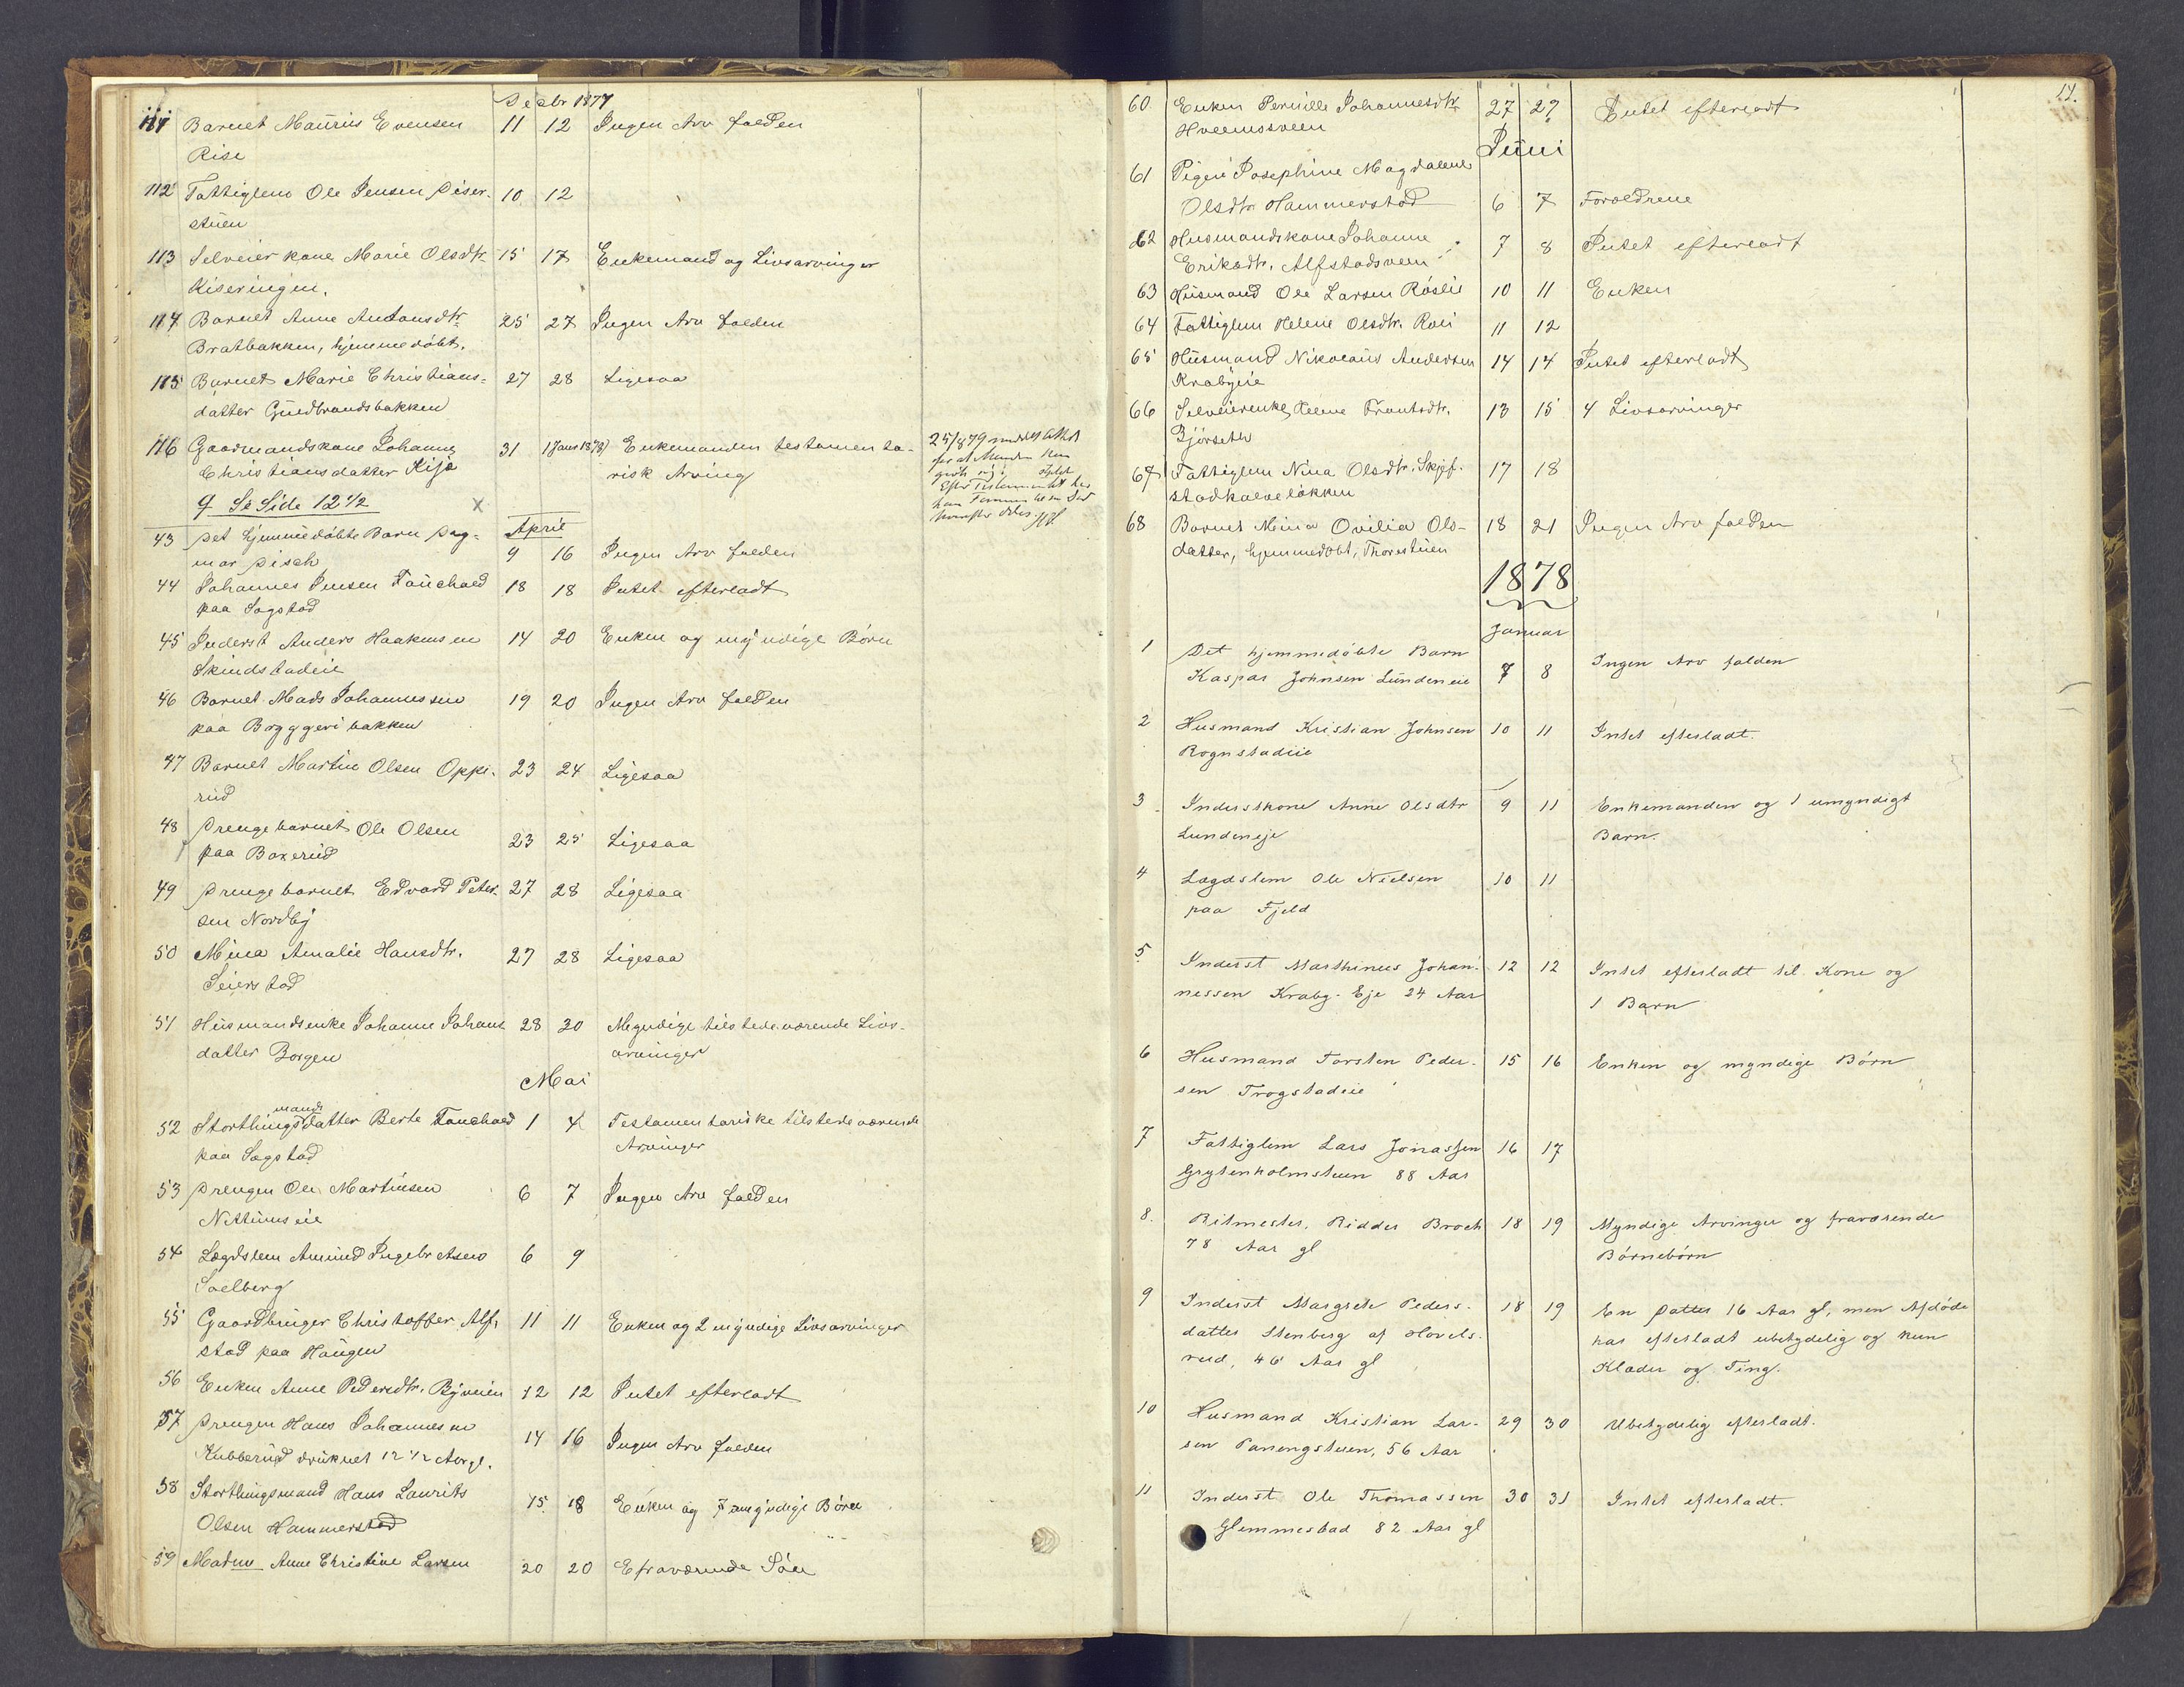 Decbr 1877
111 Barnet Maurius Evensen 11 12 Ingen Arv falden
Rise
112 Fattiglem Ole Jensen Diser- 10 12
stuen
113 Selveierkone Marie Olsdtr. 15 17 Enkemand og Livsarvinger
Kiseringen.
114 Barnet Anne Antonsdtr. 25 27 Ingen Arv falden
Bratbakken, hjemmedøbt.
115 Barnet Marie Christians- 27 28 Ligesaa
datter Gudbrandsbakken
116 Gaardmandskone Johanne 31 Enkemanden testamenta-
Christiansdatter Kise risk Arving
Se Side 12 1/2 X
April
43 Det hjemmedøbte Barn Dag- 9 16 Ingen Arv falden
mar Disch
44 Johannes Jensen Fauchald 18 18 Intet efterladt
paa Sogstad
45 Inderst Anders Haakensen 14 20 Enken og myndige Børn
Skindstadeie
46 Barnet Mads Johannessen 19 20 Ingen Arv falden
paa Bryggeribakken
47 Barnet Martin Olsen Oppe- 23 24 Ligesaa
rud
48 Drengebarnet Ole Olsen 23 25 Ligesaa
paa Boxerud
49 Drengebarnet Edvard Peter- 27 28 Ligesaa
sen Nordby
50 Mina Amalie Hansdtr. 27 28 Ligesaa
Seierstad
51 Husmandsenke Johanne Johans 28 30 Myndige tilstedeværende Livs-
datter Borgen arvinger
Mai
52 Storthingsmandsdatter Berte Fauchald 1 4 Testamentariske tilstedeværende
paa Sogstad Arvinger
53 Drengen Ole Martinsen 6 7 Ingen Arv falden
Nettumseie
54 Lægdslem Amund Ingebretsen 6 9
Solberg
55 Gaardbruger Christoffer Alf- 11 11 Enken og 2 myndige Livsarvinger
stad paa Haugen
56 Enken Anne Pedersdtr. Byveien 12 12 Intet efterladt
57 Drengen Hans Johannesen 14 16 Ingen Arv falden
Kubberud druknet 12 1/2 Aar gl.
58 Storthingsmand Hans Laurits 15 18 Enken og 7 umyndige Børn
Olsen Hammerstad
59 Madme Anne Christine Larsen 20 20 E fraværende Søn
60. Enken Pernille Johannesdtr. 27 29 Intet efterladt
Hveemsveen
Juni
61 Pigen Josephine Magdalene
Olsdtr. Hammerstad 6 7 Forældrene
62 Husmandskone Johanne 7 8 Intet efterladt
Eriksdtr. Alfstadsveen
63 Husmand Ole Larsen Røslie 10 11 Enken
64 Fattiglem Helene Olsdtr. Roli 11 12
65 Husmand Nikolaus Andersen 14 14 Intet efterladt
Krabyeie
66 Selveierenke Helene Frantsdtr. 13 15 4 Livsarvinger
Gjørseth
67 Fattiglem Nina Olsdtr. Skjef- 17 18
stadkalveløkken
68 Barnet Mina Ovilia Ols- 18 21 Ingen Arv falden
datter, hjemmedøbt, Thorestuen
1878
Januar
1 Det hjemmedøbte Barn
Kaspar Johnsen Lundeneie 7 8 Ingen Arv falden
2 Husmand Kristian Johnsen 10 11 Intet efterladt.
Rognstadeie
3 Inderstkone Anne Olsdtr 9 11 Enkemanden og 1 umyndigt
Lundeneje Barn.
4 Lægdslem Ole Nielsen 10 11
paa Fjeld
5 Inderst Marthinus Johan- 12 12 Intet efterladt til Kone og
nessen Kraby-Eje 24 Aar 1 Barn
6 Husmand Torsten Peder- 15 16 Enken og myndige Børn
sen Trogstadeie
7 Fattiglem Lars Jonassen 16 17
Grytenholmstuen 88 Aar
8. Ritmester, Ridder Broch 18 19 Myndige Arvinger og fraværende
78 Aar gl Børnebørn
9 Inderst Margrete Peders- 18 19 En Datter 16 Aar gl, men Afdøde
datter Stenberg af Hovels- har efterladt ubetydelig og kun
rud, 46 Aar gl Klæder og Ting.
10 Husmand Kristian Lar- 29 30 Ubetydelig efterladt.
sen Panengstuen, 56 Aar
11 Inderst Ole Thomassen 30 31 Intet efterladt.
Glemmestad 82 Aar gl